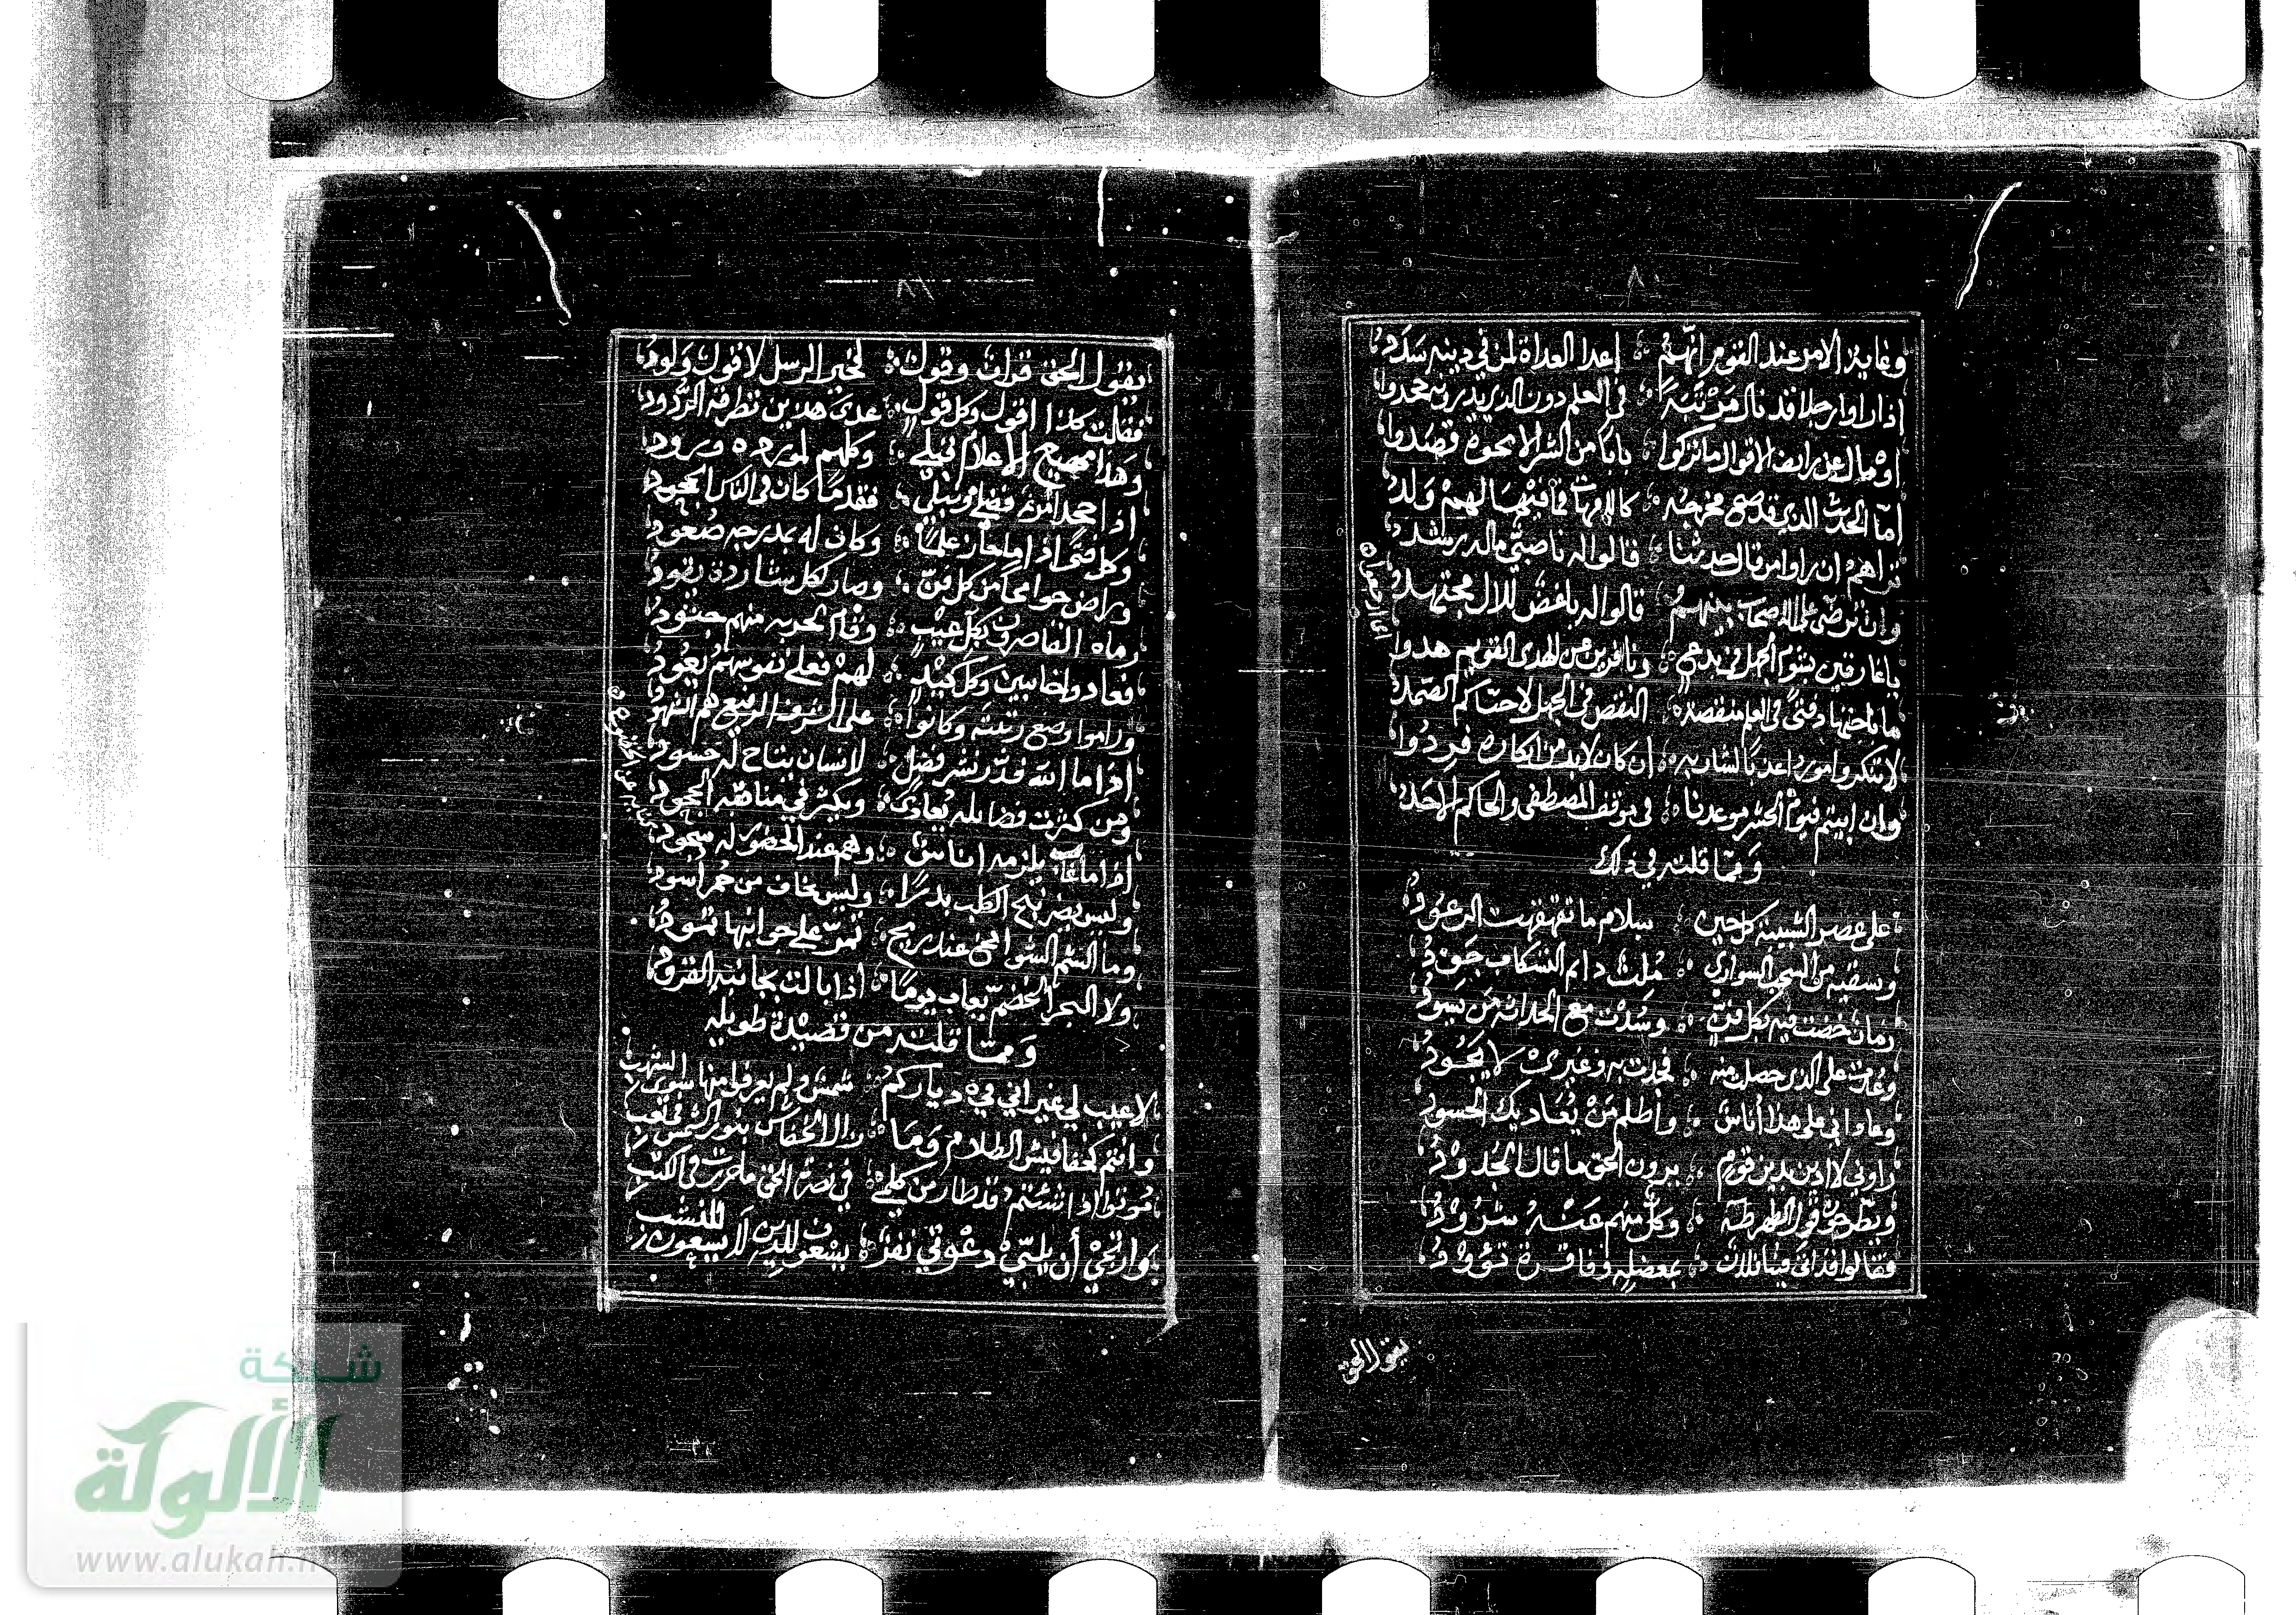 ٨٠
وغاية الامر عند القوم انهم اعدا العداة لمن في دينه سدد
اذا راوا رجلا قد نال مرتبة في العلم دون الذي يدرونه جحدوا
او مال عن زايف الاقوال ما تركوا بابا من الشر الا نحوه قصدوا
اما الحديث الذي قد صح مخرجه كالامهات فما فيهم لها ولد
تراهم ان راوا من قال حدثنا قالوا له ناصبي ماله رشد
وان ترضى على الاصحاب بينهم قالوا له باغض للال مجتهد
يا غارقين بشوم الجهل في بدع ونافرين عن الهدى القويم هدوا
ما باجتهاد فتى في العلم منقصة النقص في الجهل لا حياكم الصمد
لا تنكروا موردا عذبا لشاربه ان كان لابد من انكاره فردوا
وان ابيتم فيوم الحشر موعدنا في موقف المصطفى والحاكم الاحد
ومما قلته في ذلك
على عصر الشبيبة كل حين سلام ما تقهقهت الرعود
وسقيه من السحب السواري ملث دايم التسكاب جود
زمان خضت فيه بكل فن وسدت مع الحداثة من يسود
وعدت على الذي حصلت منه فجدت به وغيري لا يجود
وعاداني على هذا اناس واظلم من يعاديك الحسود
راوني لا ادين بدين قوم يرون الحق ما قال الجدود
ويطرحون قول الطهر طه وكل منهم عنه شرود
فقالوا قد اتى فينا فلان بمعضلة وفاقرة تؤود
يقول الحق
٨١
يقول الحق قران وقول لخير الرسل لا قول ولود
فقلت كذا اقول وكل قول عدى هذين تطرقه الردود
وهذا مهيع الاعلام قبلي وكلهم لمورده ورود
اذا جحد امرء فضلي ونبلي فقدما كان في الناس الجحود
وكل فتى اذا ما حاز علما وكان له بمدرجه صعود
وراض جوامحا من كل فن وصار لكل شاردة يقود
رماه القاصرون بكل عيب وقام لحربه منهم جنود
فعادوا خايبين وكل كيد لهم فعلى نفوسهم يعود
وراموا وضع رتبته وكانوا على الشرف الرفيع هم الشهود
اذا ما الله قدر نشر فضل لانسان يتاح له حسود
ومن كثرت فضايله يعادى ويكثر في مناقبه الجحود
اذا ما غاب يلزمه اناس وهم عند الحضور له سجود
وليس يضر نبح الكلب بدرا وليس يخاف من حمر اسود
وما الشم الشوامخ عند ريح تمر على جوانبها تمود
ولا البحر الخضم يعاب يوما اذا بالت بجانبه القرود
ومما قلته من قصيدة طويله
لا عيب لي غير اني في دياركم شمس ولم يعرفوا منها سوى الشهب
وانتم كخفافيش الظلام وما زال الخفاش بنور الشمس في تعب
موتوا اذا شئتم قد طار من كلمي في نصرة الحق ما حررت في الكتب
وارتجي أن يلبي دعوتي نفر يسعون للدين لا يسعون للنشب